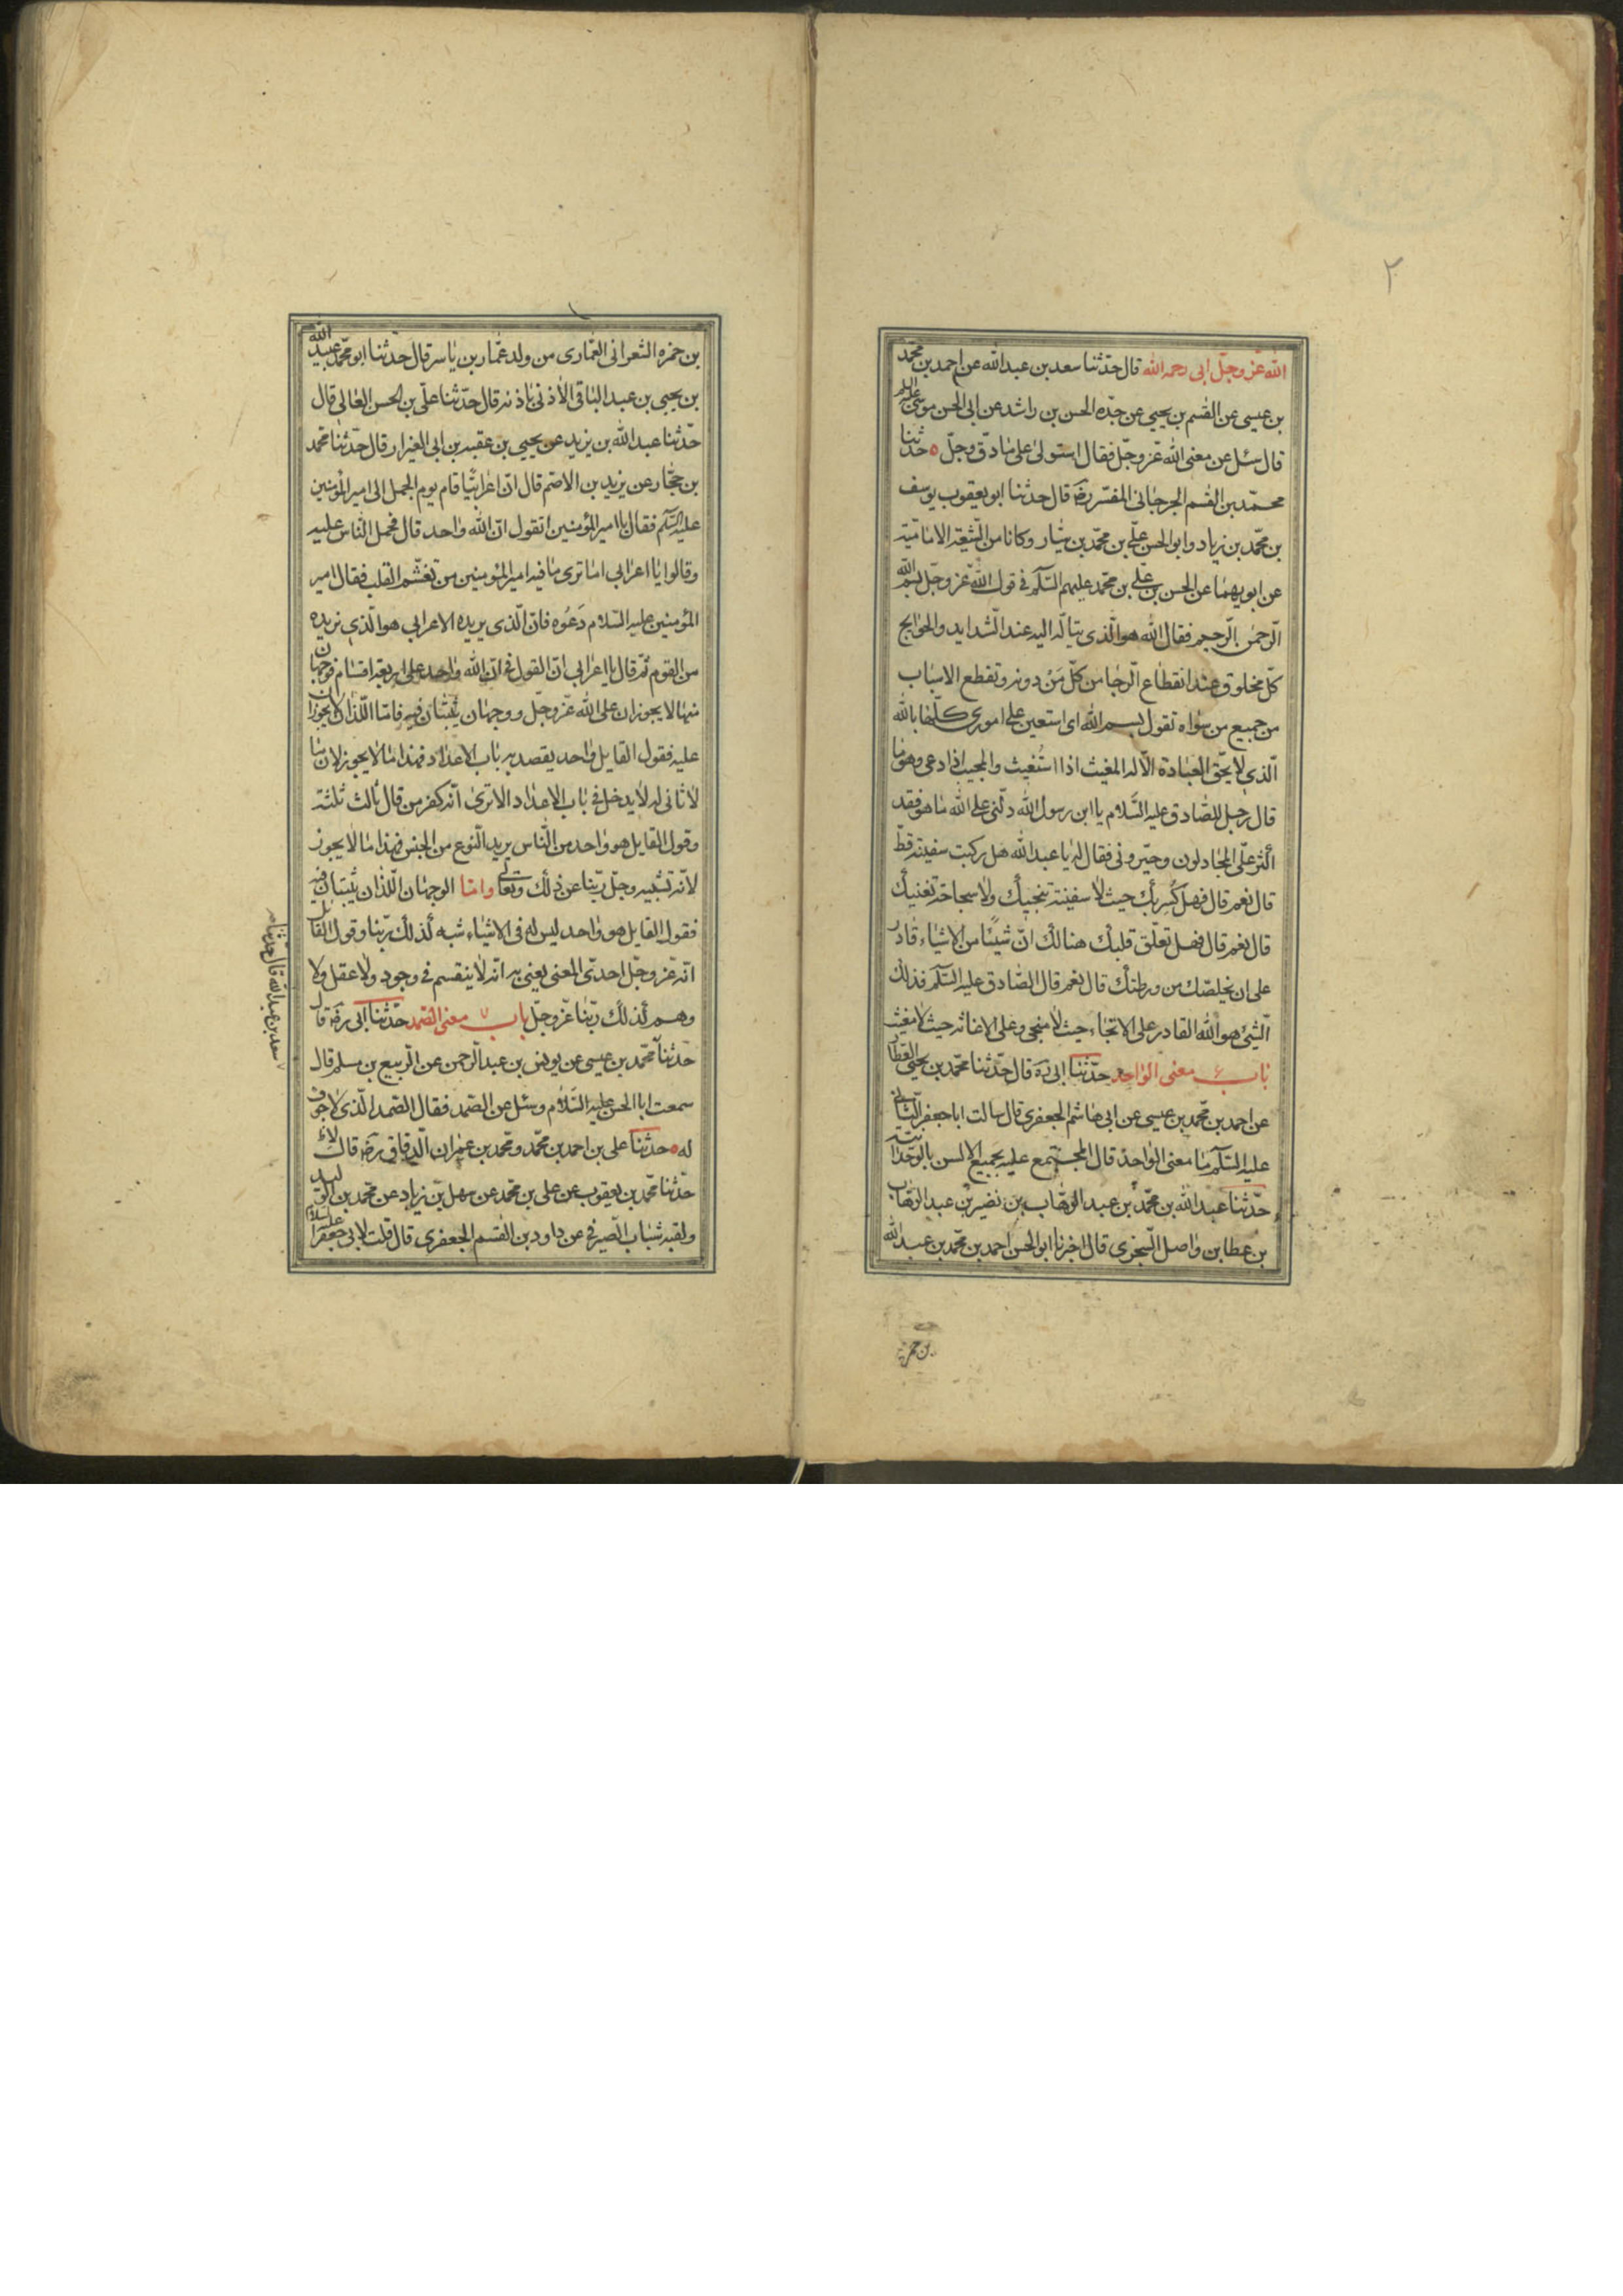 ٢
الله عزّ وجلّ ابى رحمه الله قال حدّثنا سعد بن عبد الله عن احمد بن محمّد
بن عيسى عن القسم بن يحيى عن جدّه الحسن بن راشد عن ابى الحسن موسى عليه السلم
قال سئل عن معنى الله عزّ وجلّ فقال استولى على ما دقّ وجلّ ه حدثنا
محمّد بن القسم الجرجانى المفسّر رضه قال حدثنا ابو يعقوب يوسف
بن محمّد بن زياد وابو الحسن علّى بن محمّد بن سيّار وكانا من الشّيعة الاماميّة
عن ابويهما عن الحسن بن علّى بن محمّد عليهم السّلم فى قول الله عزّ وجلّ بسم الله
الرّحمن الرّحيم فقال الله هو الّذى يتالّه اليه عند الشّدايد والحوايج
كلّ مخلوق عند انقطاع الرّجا من كلّ مَنْ دونه وتقطع الاسباب
من جميع من سواه تقول بسم الله اى استعين على امورى كلّها بالله
الّذى لا يحّق العبادة الّا له المغيث اذا استُغيث والمجيب اذا دعى وهو ما
قال رجل للصّادق عليه السّلام يا ابن رسول الله دلّنى على الله ما هو فقد
اكثر علّى المجادلون وحيّرونى فقال له يا عبد الله هل ركبت سفينة قطّ
قال نعم قال فهل كُسِر بك حيث لا سفينة تنجيك ولا سباحة تغنيك
قال نعم قال فهل تعلّق قلبك هنالك انّ شيئًا من الاشياء قادر
على ان يخلصّك من ورطتك قال نعم قال الصّادق عليه السّلم فذلك
الشّيئ هو الله القادر على الانجاء حيث لا منجى وعلى الاغاثه حيث لا مغيث
باب ٦ معنى الواحد حدّثنا ابى ره قال حدّثنا محمّد بن يحيى العطار
عن احمد بن محمّد بن عيسى عن ابى هاشم الجعفرى قال سالت ابا جعفر الثّانى
عليه السّلم ما معنى الواحد قال المجتمع عليه بجميع الالسن بالوحدانيّة
حدّثنا عبد الله بن محمّد بن عبد الوهّاب بن نضير بن عبد الوهّاب
بن عطا بن واصل السّجزى قال اخبرنا ابو الحسن احمد بن محمّد بن عبد الله
بن حمزه
بن حمزه الشعرانى العمّارى من ولد عمّار بن ياسر قال حدّثنا ابو محمّد عبيد الله
بن يحيى بن عبد الباقى الاذنى باذنه قال حدّثنا علّى بن الحسن المعانى قال
حدّثنا عبد الله بن يزيد عن يحيى بن عقبه بن ابى الغيزار قال حدّثنا محمد
بن حجّار عن يزيد بن الاصّم قال انّ اعرابيًّا قام يوم الجمل الى امير المؤمنين
عليه السّلم فقال يا امير المؤمنين اتقول انّ الله واحد قال فحمل النّاس عليه
وقالوا يا اعرابى اما ترى ما فيه امير المؤمنين من تقسّم القلب فقال امير
المؤمنين عليه السّلام دَعُوه فانّ الّذى يريده الاعرابى هو الّذى نريده
من القوم ثمّ قال يا اعرابى انّ القول فى انّ الله واحد على اربعة اقسام فوجهان
منها لا يجوزان على الله عزّ وجلّ ووجهان يُثبتان فيه فامّا اللّذان لا يجوزان
عليه فقول القايل واحد يقصد به باب الاعداد فهذا ما لا يجوز لان ما
لا ثانى له لا يدخل فى باب الاعداد الا ترى انّه كفر من قال ثالث ثلثة
وقول القايل هو واحد من النّاس يريد النّوع من الجنس فهذا ما لا يجوز
لانّه تشبيه وجلّ ربّنا عن ذلك وتعالى وامّا الوجهان اللّذان يُثبتان فيه
فقول القايل هو واحد ليس له فى الاشياء شبه كذلك ربّنا وقول القايل
انّه عزّ وجلّ احدىّ المعنى يعنى به انّه لا ينقسم فى وجود ولا عقل ولا
وهم كذلك ربّنا عزّ وجلّ باب ٧ معنى الصّمد حدّثنا ابى رضه قال
حدّثنا محمّد بن عيسى عن يونس بن عبد الرّحمن عن الرّبيع بن مسلم قال
سمعت ابا الحسن عليه السّلام وسئل عن الصّمد فقال الصّمد الّذى لا جوف
له ه حدّثنا على بن احمد بن محمّد ومحمّد بن عمران الدّقاق رضه قالا
حدّثنا محمّد بن يعقوب عن على بن محمّد عن سهل بن زياد عن محمّد بن الوليد
ولقبه شباب الصّيرفى عن داود بن القسم الجعفرى قال قلت لابى جعفر عليه السلام
سعد بن عبد الله قال حدّثنا